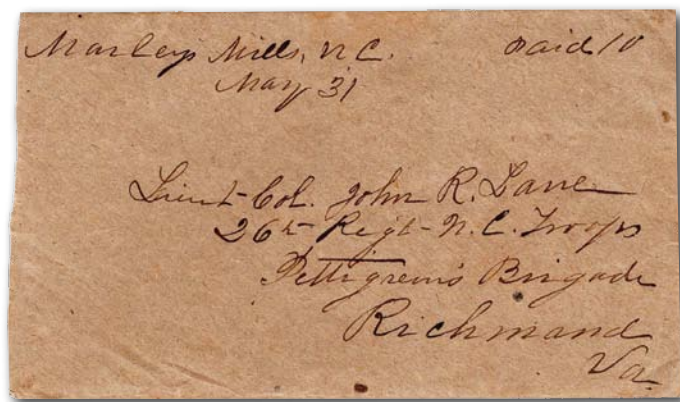 Marleys Mills, N C. Paid 10
May 31
Lieut-Col. John R. Lane
26th Regt- N. C. Troops
Pettigrew's Brigade
Richmand
Va